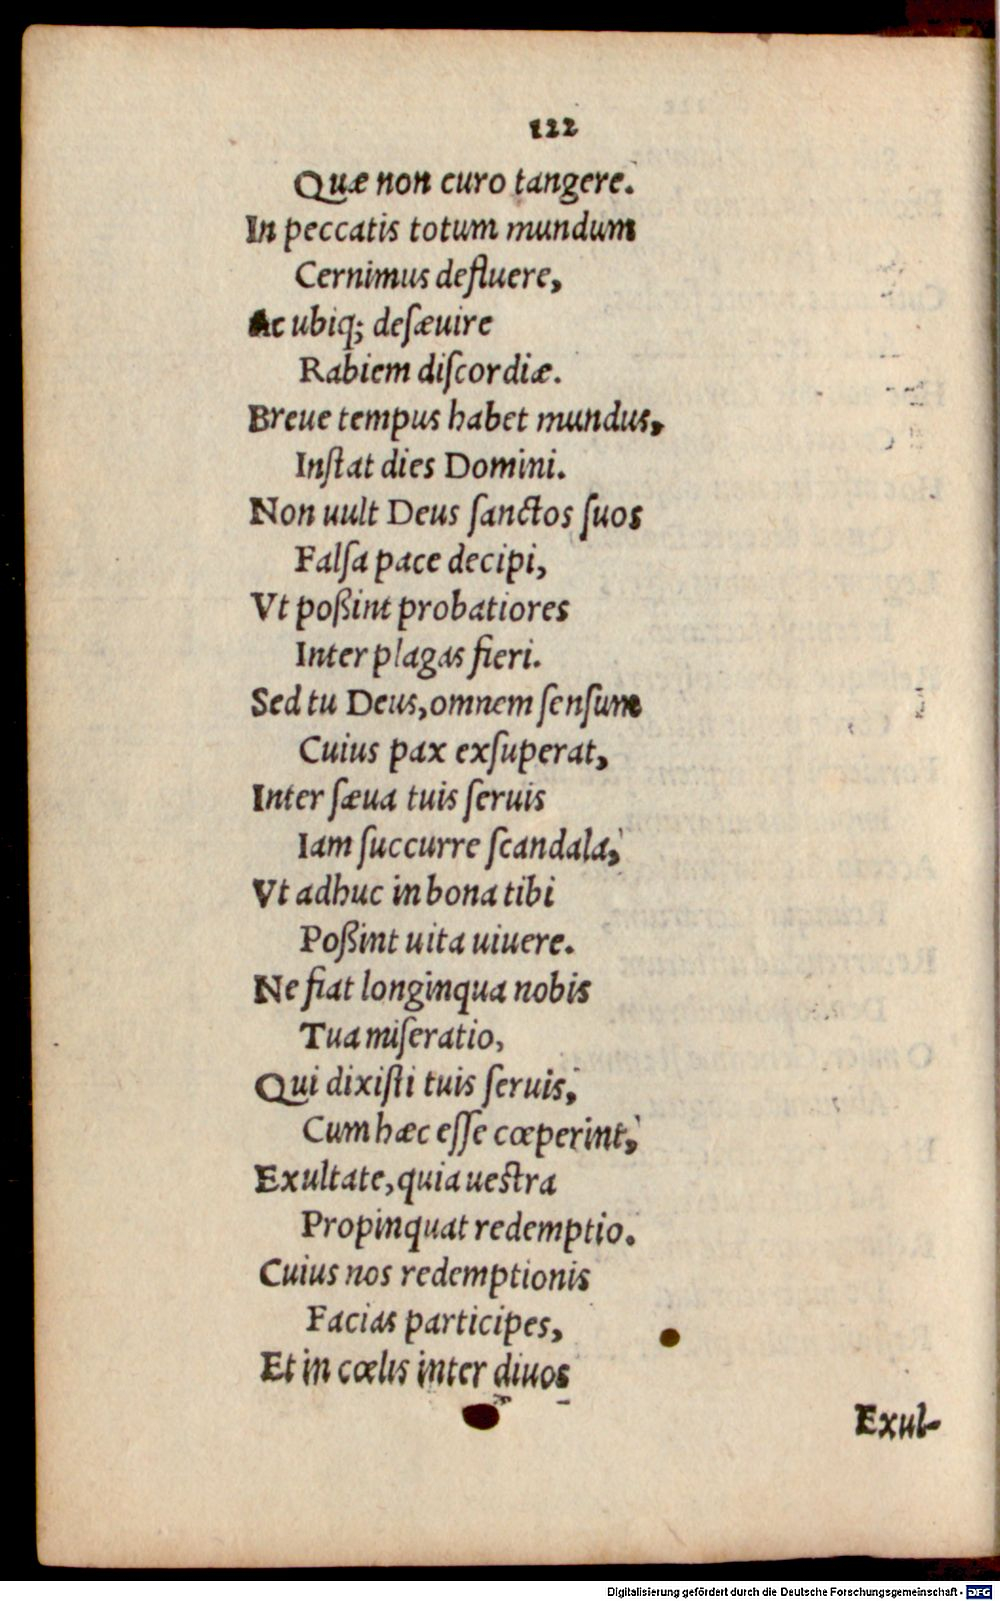 122
Quæ non curo tangere.
In peccatis totum mundum
Cernimus defluere,
Ac ubiq; deſæuire
Rabiem diſcordiæ.
Breue tempus habet mundus,
Inſtat dies Domini.
Non uult Deus ſanctos ſuos
Falſa pace decipi,
Vt poßint probatiores
Inter plagas fieri.
Sed tu Deus, omnem ſenſum
Cuius pax exſuperat,
Inter ſæua tuis ſeruis
Iam ſuccurre ſcandala,
Vt adhuc in bona tibi
Poßint uita uiuere.
Ne fiat longinqua nobis
Tua miſeratio,
Qui dixiſti tuis ſeruis,
Cum hæc eſſe cœperint,
Exultate, quia ueſtra
Propinquat redemptio.
Cuius nos redemptionis
Facias participes,
Et in cœlis inter diuos
Exul-
Digitalisierung gefördert durch die Deutsche Forschungsgemeinschaft - DFG